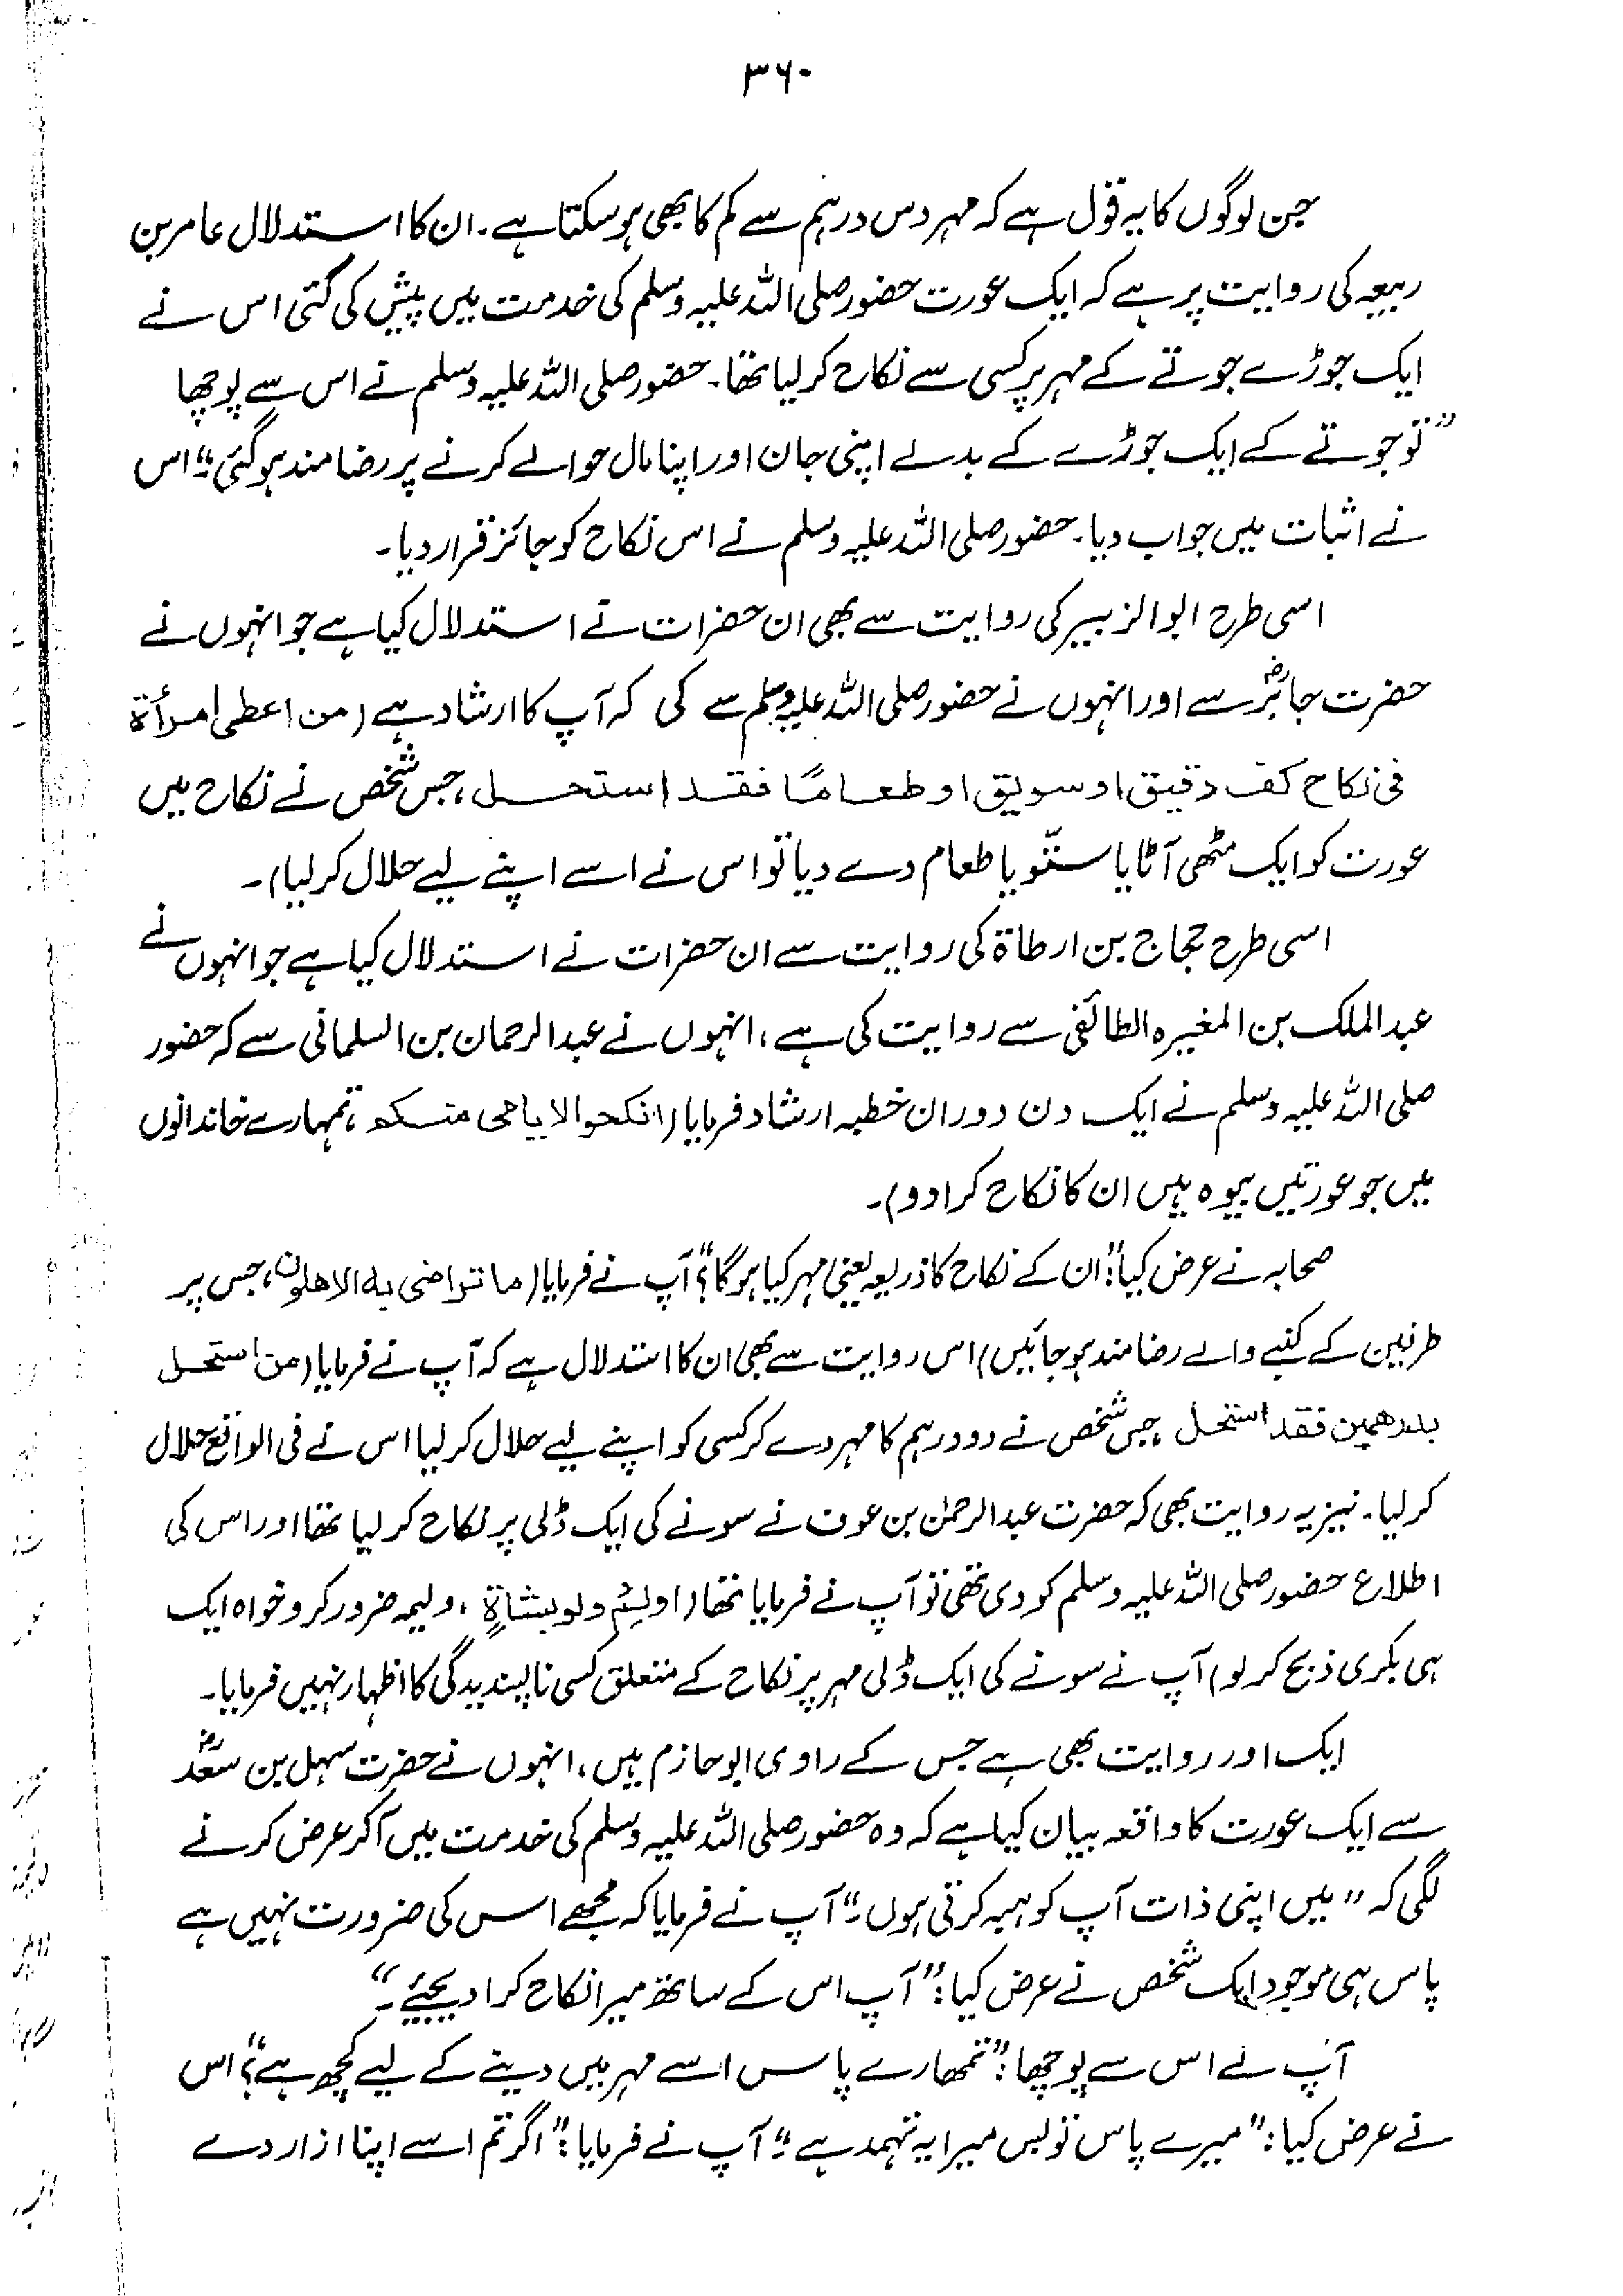 ۳۶۰
جن لوگوں کا یہ قول ہے کہ مہر دس درہم سے کم کا بھی ہو سکتا ہے۔ ان کا استدلال عامر بن
ربیعہ کی روایت پر ہے کہ ایک عورت حضور صلی اللہ علیہ وسلم کی خدمت میں پیش کی گئی اس نے
ایک جوڑے جوتے کے مہر پر کسی سے نکاح کر لیا تھا۔ حضور صلی اللہ علیہ وسلم نے اس سے پوچھا
”تو جوتے کے ایک جوڑے کے بدلے اپنی جان اور اپنا مال حوالے کرنے پر رضامند ہو گئی؟“ اس
نے اثبات میں جواب دیا۔ حضور صلی اللہ علیہ وسلم نے اس نکاح کو جائز قرار دیا۔
اسی طرح ابوالزبیر کی روایت سے بھی ان حضرات نے استدلال کیا ہے جو انہوں نے
حضرت جابرؓ سے اور انہوں نے حضور صلی اللہ علیہ وسلم سے کی کہ آپ کا ارشاد ہے (من اعطی امرأة
فی نکاح کف دقیق او سویق او طعامًا فقد استحل، جس شخص نے نکاح میں
عورت کو ایک مٹھی آٹا یا ستّو یا طعام دے دیا تو اس نے اسے اپنے لیے حلال کر لیا)۔
اسی طرح حجاج بن ارطاۃ کی روایت سے ان حضرات نے استدلال کیا ہے جو انہوں نے
عبدالملک بن المغیرہ الطائفی سے روایت کی ہے، انہوں نے عبدالرحمان بن السلمانی سے کہ حضور
صلی اللہ علیہ وسلم نے ایک دن دوران خطبہ ارشاد فرمایا (انکحوا الایامی منکم، تمہارے خاندانوں
میں جو عورتیں بیوہ ہیں ان کا نکاح کرا دو)۔
صحابہ نے عرض کیا: ”ان کے نکاح کا ذریعہ یعنی مہر کیا ہوگا؟“ آپ نے فرمایا (ما تراضی به الاهلون، جس پر
طرفین کے کنبے والے رضامند ہو جائیں) اس روایت سے بھی ان کا استدلال ہے کہ آپ نے فرمایا (من استحل
بدرهمین فقد استحل، جس شخص نے دو درہم کا مہر دے کر کسی کو اپنے لیے حلال کر لیا اس نے فی الواقع حلال
کر لیا۔ نیز یہ روایت بھی کہ حضرت عبدالرحمٰن بن عوف نے سونے کی ایک ڈلی پر نکاح کر لیا تھا اور اس کی
اطلاع حضور صلی اللہ علیہ وسلم کو دی تھی تو آپ نے فرمایا تھا (اولِم ولو بشاةٍ، ولیمہ ضرور کرو خواہ ایک
ہی بکری ذبح کر لو) آپ نے سونے کی ایک ڈلی مہر پر نکاح کے متعلق کسی ناپسندیدگی کا اظہار نہیں فرمایا۔
ایک اور روایت بھی ہے جس کے راوی ابو حازم ہیں، انہوں نے حضرت سہل بن سعدؓ
سے ایک عورت کا واقعہ بیان کیا ہے کہ وہ حضور صلی اللہ علیہ وسلم کی خدمت میں آکر عرض کرنے
لگی کہ ”میں اپنی ذات آپ کو ہبہ کرتی ہوں۔“ آپ نے فرمایا کہ مجھے اس کی ضرورت نہیں ہے
پاس ہی موجود ایک شخص نے عرض کیا: ”آپ اس کے ساتھ میرا نکاح کرا دیجئے۔“
آپ نے اس سے پوچھا: ”تمھارے پاس اسے مہر میں دینے کے لیے کچھ ہے؟“ اس
نے عرض کیا: ”میرے پاس تو بس میرا یہ تہمد ہے۔“ آپ نے فرمایا: ”اگر تم اسے اپنا ازار دے